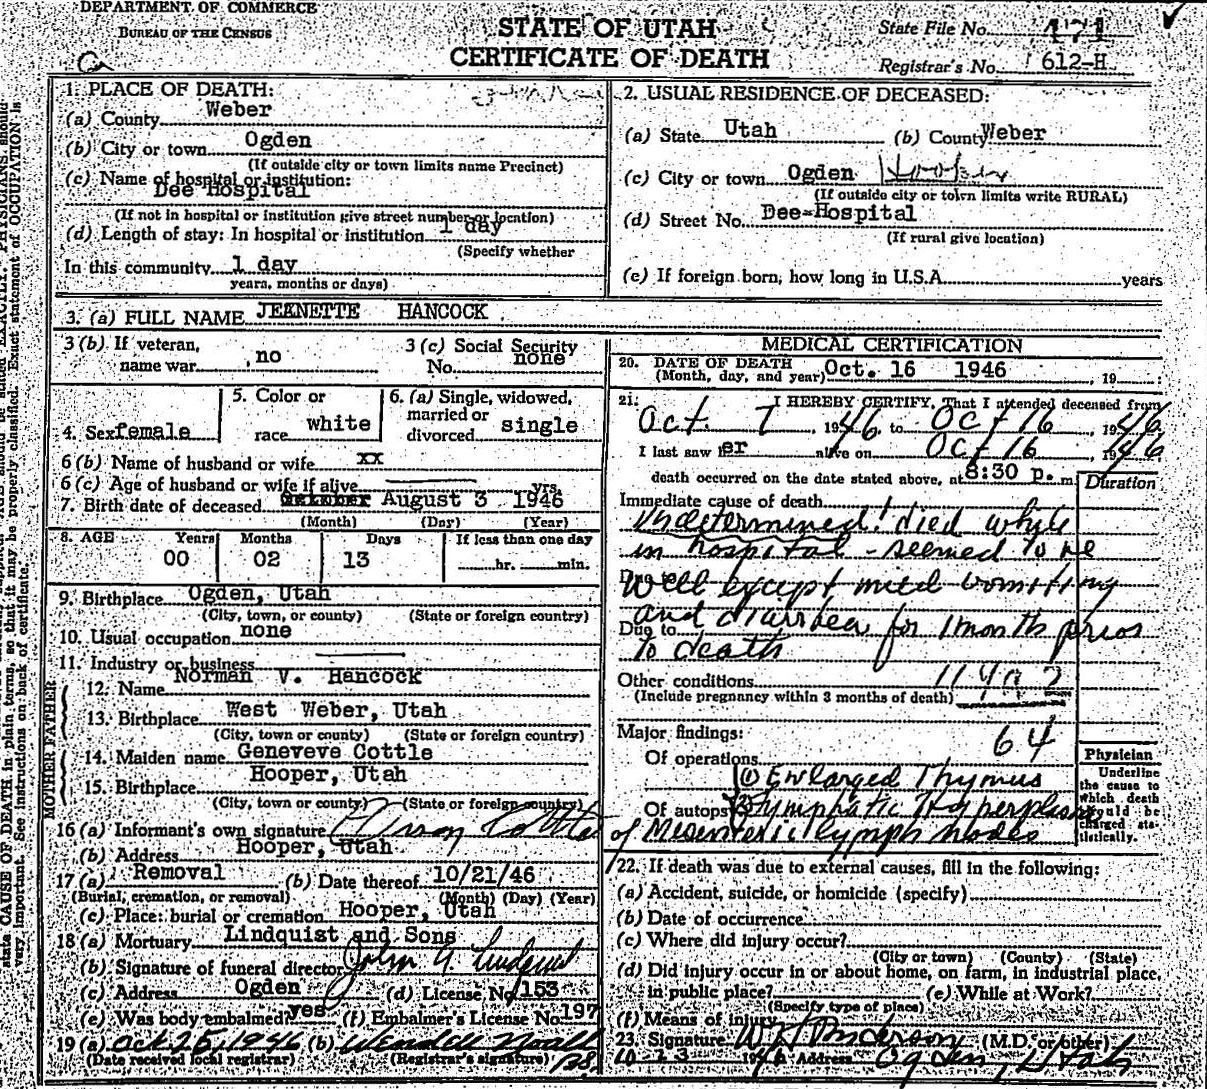 DEPARTMENT OF COMMERCE
BUREAU OF THE CENSUS
STATE OF UTAH
CERTIFICATE OF DEATH
State File No. 171
Registrar's No. 612-H
1. PLACE OF DEATH:
(a) County Weber
(b) City or town Ogden
(If outside city or town limits name Precinct)
(c) Name of hospital or institution:
Dee Hospital
(If not in hospital or institution give street number or location)
(d) Length of stay: In hospital or institution 1 day
(Specify whether
In this community 1 day
years, months or days)
2. USUAL RESIDENCE OF DECEASED:
(a) State Utah (b) County Weber
(c) City or town Ogden Hooper
(If outside city or town limits write RURAL)
(d) Street No. Dee-Hospital
(If rural give location)
(e) If foreign born, how long in U.S.A. years
3. (a) FULL NAME JEANETTE HANCOCK
3 (b) If veteran, name war no
3 (c) Social Security No. none
4. Sex female
5. Color or race white
6. (a) Single, widowed, married or divorced single
6 (b) Name of husband or wife xx
6 (c) Age of husband or wife if alive yrs.
7. Birth date of deceased October August 3 1946
(Month) (Day) (Year)
8. AGE Years Months Days If less than one day
00 02 13 hr. min.
9. Birthplace Ogden, Utah
(City, town, or county) (State or foreign country)
10. Usual occupation none
11. Industry or business
FATHER
12. Name Norman V. Hancock
13. Birthplace West Weber, Utah
(City, town or county) (State or foreign country)
MOTHER
14. Maiden name Geneveve Cottle
15. Birthplace Hooper, Utah
(City, town or county) (State or foreign country)
16 (a) Informant's own signature Cottle
(b) Address Hooper, Utah
17 (a) Removal (b) Date thereof 10/21/46
(Burial, cremation, or removal) (Month) (Day) (Year)
(c) Place: burial or cremation Hooper, Utah
18 (a) Mortuary Lindquist and Sons
(b) Signature of funeral director John A. Lindquist
(c) Address Ogden (d) License No. 153
(e) Was body embalmed? yes (f) Embalmer's License No. 197
19 (a) Oct 25, 1946 (b) Wendell Noall
(Date received local registrar) (Registrar's signature)
MEDICAL CERTIFICATION
20. DATE OF DEATH
(Month, day, and year) Oct. 16 1946, 19
21. I HEREBY CERTIFY, That I attended deceased from
Oct. 7, 1946, to Oct 16, 1946
I last saw her alive on Oct 16, 1946
death occurred on the date stated above, at 8:30 p. m.
Duration
Immediate cause of death
Undetermined! died while
in hospital - seemed to be
Due to
well except mild vomiting
and diarrhea for 1 month prior
Due to
to death
Other conditions 119a2
(Include pregnancy within 3 months of death)
Major findings: 64
Of operations (1) Enlarged Thymus
Of autopsy (2) Lymphatic Hyperplasia
of Mesenteric lymph nodes
Physician
Underline the cause to which death should be charged statistically.
22. If death was due to external causes, fill in the following:
(a) Accident, suicide, or homicide (specify)
(b) Date of occurrence
(c) Where did injury occur?
(City or town) (County) (State)
(d) Did injury occur in or about home, on farm, in industrial place, in public place? (e) While at Work?
(Specify type of place)
(f) Means of injury
23. Signature Anderson (M.D. or other)
10-23 1946 Address Ogden, Utah
state CAUSE OF DEATH in plain terms, so that it may be properly classified. Exact statement of OCCUPATION is
very important. See instructions on back of certificate.